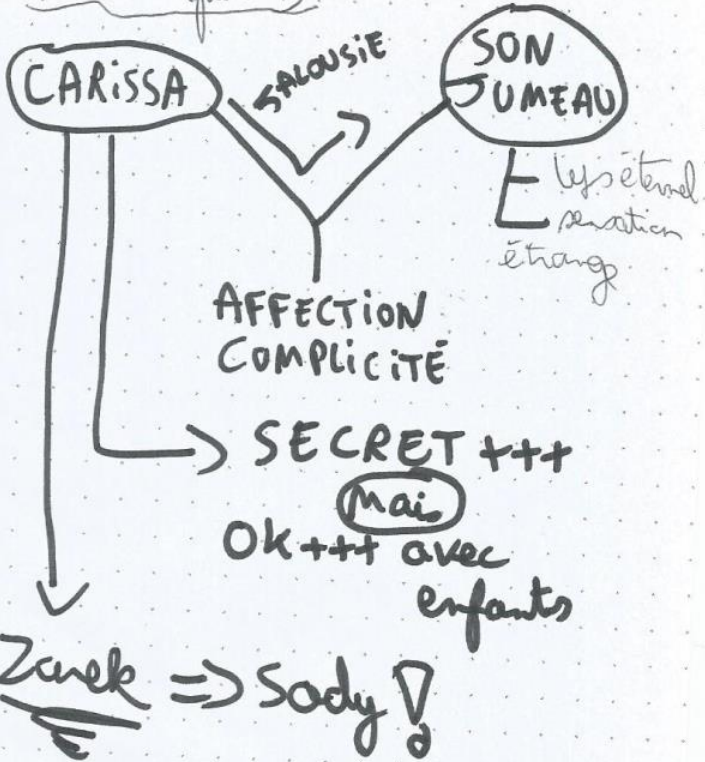 CARiSSA
JALOUSiE
SON
JUMEAU
lys éternel
sensation
étrange
AFFECTiON
COMPLiCiTÉ
SECRET +++
Mais
OK +++ avec
enfants
Zarek => Sody !